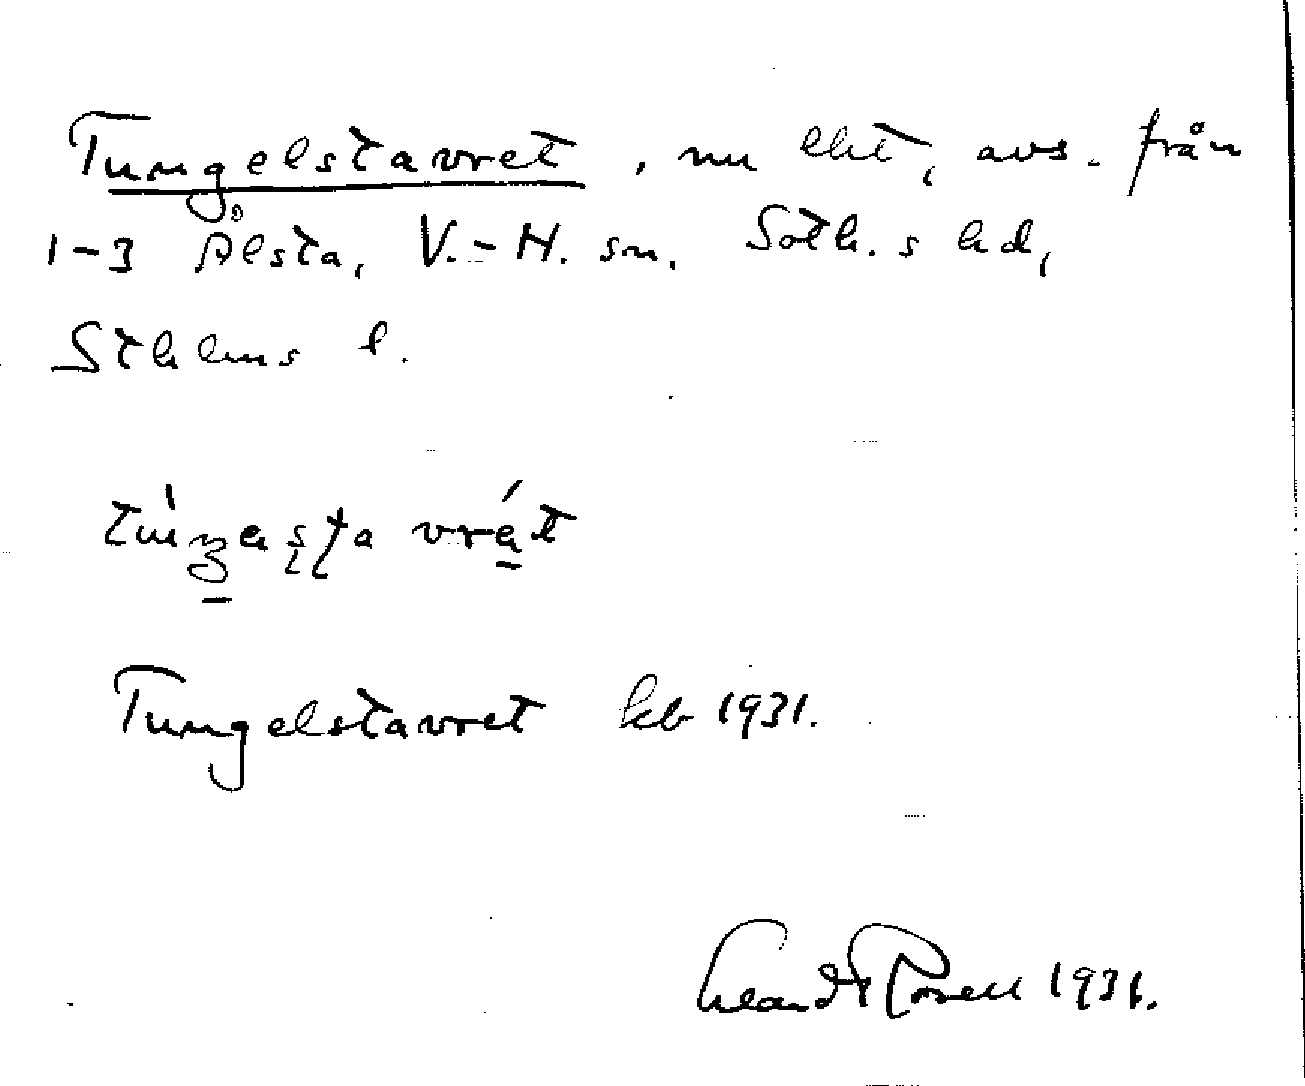 Tungelstavret, nu lht, avs. från
1-3 Ålsta, V.-H. sn. Soth.s hd,
Sthlms l.
vrat
Tungelstavret kb 1931.
1931.